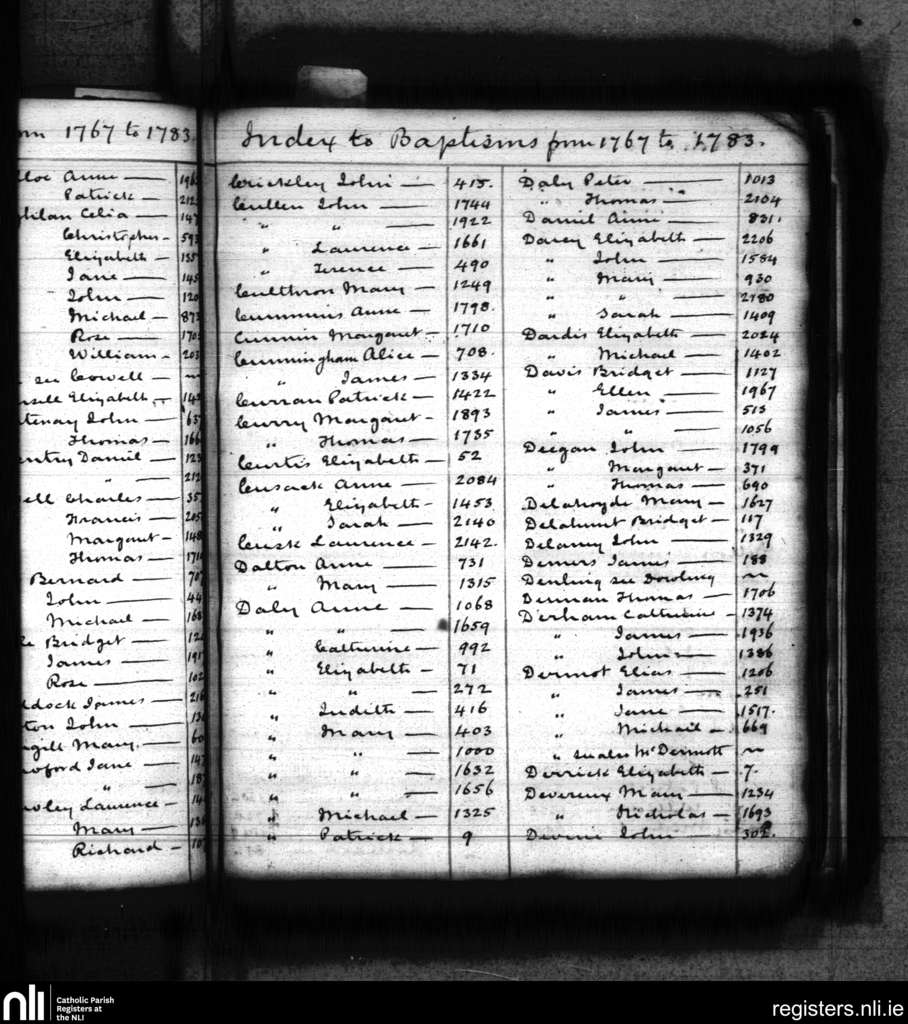 1767 to 1783
Anne — 
Patrick — 
Celia — 
Christopher —
Elizabeth —
Jane —
John —
Michael —
Rose —
William —
see Cowell —
Elizabeth —
John —
Thomas —
Daniel —
" —
Charles —
Francis —
Margaret —
Thomas —
Bernard —
John —
Michael —
Bridget —
James —
Rose —
James —
John —
Mary —
Jane —
" —
Laurence —
Mary —
Richard —
Index to Baptisms from 1767 to 1783.
Crickley John — 415.
Cullen John — 1744
" " — 1922
" Laurence — 1661
" Terence — 490
Culthron Mary — 1249
Cummins Anne — 1798.
Cunnin Margaret — 1710
Cunningham Alice — 708.
" James — 1334
Curran Patrick — 1422
Curry Margaret — 1893
" Thomas — 1735
Curtis Elizabeth — 52
Cusack Anne — 2084
" Elizabeth — 1453
" Sarah — 2140
Cusk Laurence — 2142.
Dalton Anne — 731
" Mary — 1315
Daly Anne — 1068
" " — 1659
" Catherine — 992
" Elizabeth — 71
" " — 272
" Judith — 416
" Mary — 403
" " — 1000
" " — 1632
" " — 1656
" Michael — 1325
" Patrick — 9
Daly Peter — 1013
" Thomas — 2104
Daniel Anne — 831.
Darcy Elizabeth — 2206
" John — 1584
" Mary — 930
" " — 2180
" Sarah — 1409
Dardis Elizabeth — 2024
" Michael — 1402
Davis Bridget — 1127
" Ellen — 1967
" James — 513
" " — 1056
Deegan John — 1799
" Margaret — 371
" Thomas — 690
Delahoyde Mary — 1627
Delahunt Bridget — 117
Delamy John — 1329
Demers James — 188
Denling see Dowling
Dennan Thomas — 1706
Derham Catherine — 1374
" James — 1936
" John — 1386
Dermot Elias — 1206
" James — 251
" Jane — 1517.
" Michael — 669
" see also McDermott
Derrick Elizabeth — 7.
Devereux Mary — 1234
" Nicholas — 1693
Devine John — 302.
nli
Catholic Parish
Registers at
the NLI
registers.nli.ie